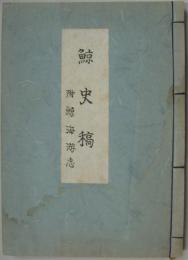 鯨史稿
附鯨海游志